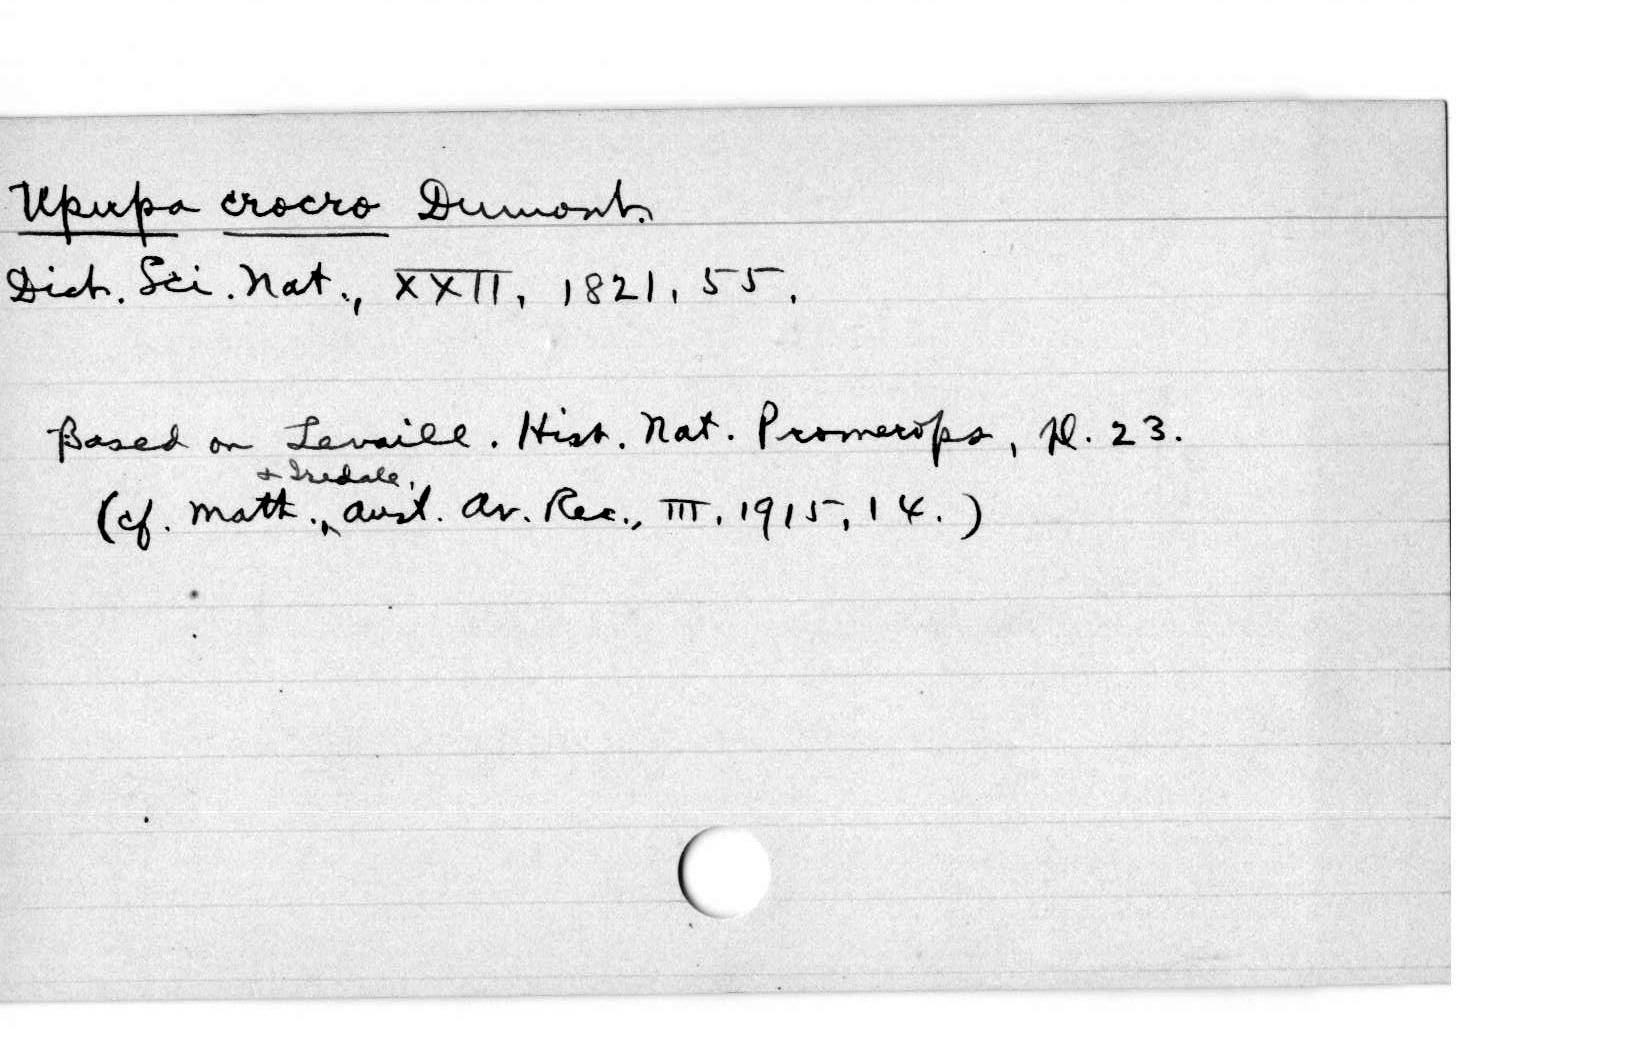 Upupa crocro Dumont.
Dict. Sci. Nat., XXII, 1821, 55.
Based on Levaill. Hist. Nat. Promerops, pl. 23.
& Iredale,
(cf. Math., Aust. Av. Rec., III, 1915, 14.)